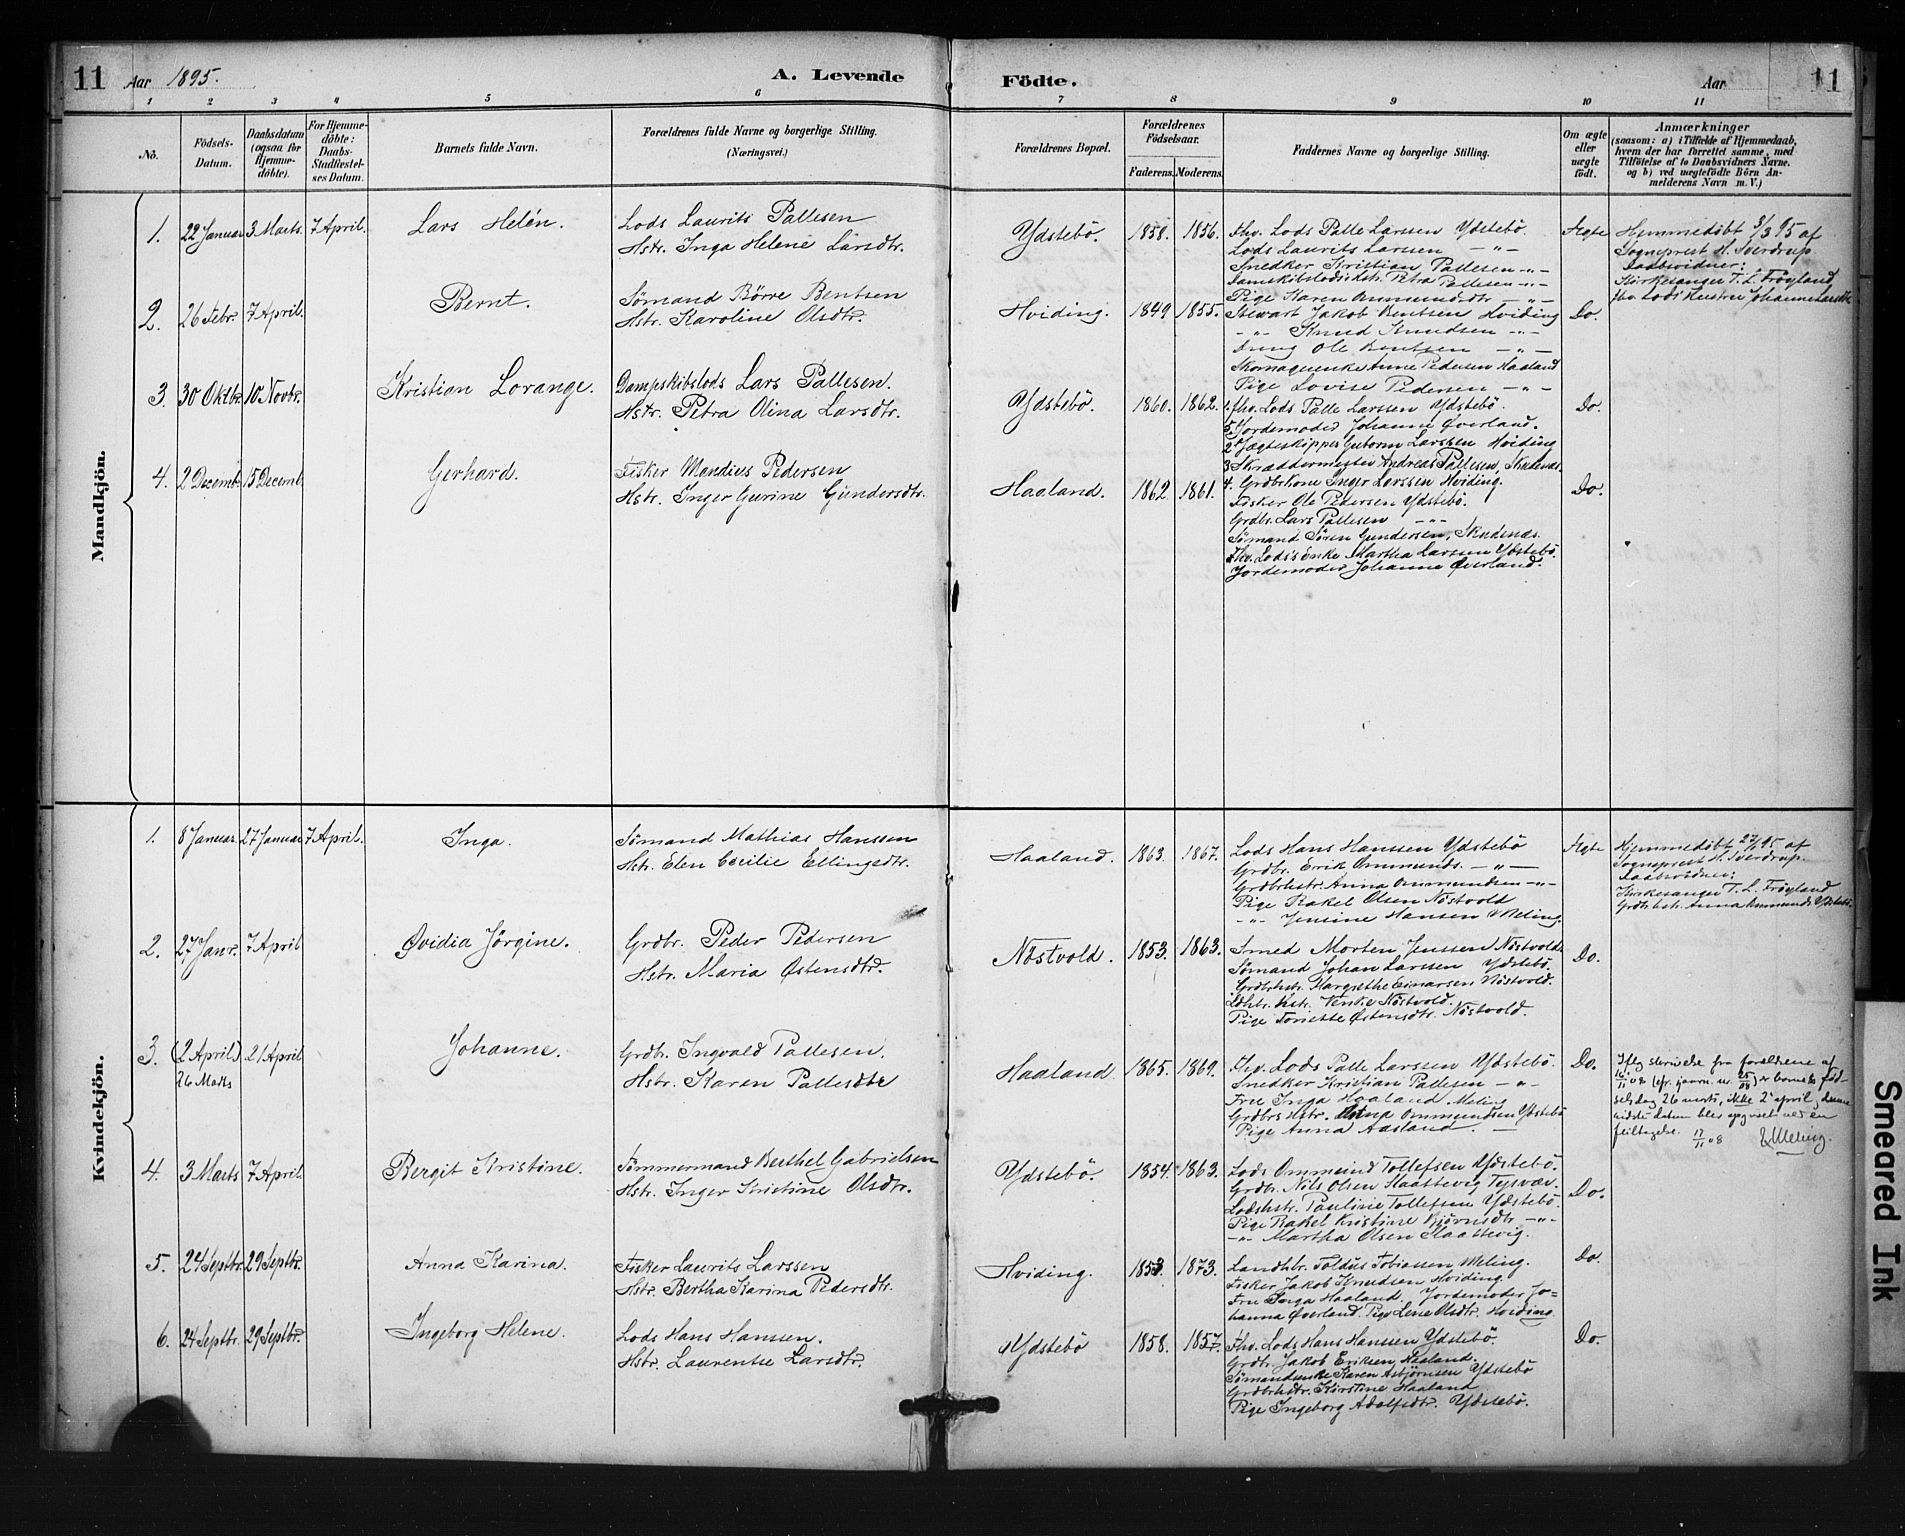 11 Aar 1895. A. Levende Födte. Aar 11
1 2 3 4 5 6 7 8 9 10 11
No.
Födsels-
Datum.
Daabsdatum
(ogsaa for
Hjemme-
döbte).
For Hjemme-
döbte:
Daabs-
Stadfæstel-
ses Datum.
Barnets fulde Navn.
Forældrenes fulde Navne og borgerlige Stilling.
(Næringsvei.)
Forældrenes Bopæl.
Forældrenes
Födselsaar.
Faderens. Moderens.
Faddernes Navne og borgerlige Stilling.
Om ægte
eller
uægte
födt.
Anmærkninger
(saasom: a) i Tilfælde af Hjemmedaab,
hvem der har forrettet samme, med
Tilföielse af to Daabsvidners Navne.
og b) ved uægtefödte Börn An-
melderens Navn m. V.)
Mandkjön.
1. 22 Januar 3 Marts. 7 April. Lars Helén.
Lods Laurits Pallesen
Hstr. Inga Helene Larsdtr.
Ydstebö. 1858. 1856.
Fhv. Lods Palle Larssen Ydstebö.
Lods Laurits Larssen -"-
Snedker Kristian Pallesen -"-
Damskibslodshstr. Petra Pallesen -"-
Pige Karen Ommundsdtr -"-
Ægte
Hjemmedöbt 3/3 95 af
Sogneprest H. Sverdrup
Daabsvidner:
Kirkesanger T. L. Fröyland,
fhv. Lods' Hustru Johanne Larsdtr
2. 26 Febr. 7 April. Bernt.
Sömand Börre Bentsen
Hstr. Karoline Olsdtr.
Hviding. 1849 1855.
Stewart Jakob Bentsen Hviding
-"- Knud Knudsen -"-
Dreng Ole Bentsen -"-
Skomagerenke Anne Pedersen Haaland
Pige Lovise Pedersen -"-
Do.
3. 30 Oktbr. 10 Novbr. Kristian Lorange.
Dampskibslods Lars Pallesen.
Hstr. Petra Olina Larsdtr.
Ydstebö. 1860. 1862.
1. fhv. Lods Palle Larssen Ydstebö.
5. Jordemoder Johanne Øverland.
2 Jægteskipper Guttorm Larssen Hviding
3 Skræddermester Andreas Pallesen, Skudenæs.
4. Grdbrkone Inger Larssen Hviding.
Do.
4. 2 Decemb. 15 Decemb. Gerhard.
Fisker Mandius Pedersen
Hstr. Inger Gurine Gundersdtr.
Haaland. 1862 1861.
Fisker Ole Pedersen Ydstebö.
Grdbr. Lars Pallesen -"-
Sömand Sören Gundersen, Skudenæs.
Fhv. Lods's Enke Martha Larssen Ydstebö.
Jordemoder Johanne Øverland.
Do.
Kvindekjön.
1. 8 Januar. 27 Januar 7 April. Inga.
Sömand Mathias Hanssen
Hstr. Elen Cecilie Ellingsdtr.
Haaland. 1863. 1867.
Lods Hans Hanssen Ydstebö
Grdbr. Erik Ommunds. -"-
Grdbrhstr. Anna Ommundsen -"-
Pige Rakel Olsen Nöstvold
-"- Jensine Hansen Meling.
Ægte
Hjemmedöbt 27/1 95 af
Sogneprest H. Sverdrup.
Daabsvidner:
Kirkesanger T. L. Fröyland
Grdbrhstr. Anna Ommunds. Ydstebö.
2. 27 Janr. 7 April Øvidia Jörgine.
Grdbr. Peder Pedersen
Hstr. Maria Østensdtr.
Nöstvold. 1853. 1863.
Smed Morten Jenssen Nöstvold
Sömand Johan Larssen Ydstebö.
Grdbrhstr. Margrethe Einarsen Nöstvold.
hstr. Venke Nöstvold.
Pige Toriette Østensdtr. Nöstvold.
Do.
3. (2 April) 21 April Johanne.
26 Marts
Grdbr. Ingvald Pallesen.
Hstr. Karen Pallesdtr
Haaland 1865. 1869.
Fhv. Lods Palle Larssen Ydstebö.
Snedker Kristian Pallesen -"-
Fru Inga Haaland Meling
Grdbrs hstr. Anna Ommundsen Ydstebö
Pige Anna Aasland. —
Do.
Iflg skrivelse fra forældrene af
16/11 08 (cfr. journ. nr. 25/08) er barnets föd-
selsdag 26 marts, ikke 2 april, denne
sidste datum blev opgivet ved en
feiltagelse. 17/11 08 Meling.
4. 3 Marts 7 April Bergit Kristine.
Tömmermand Berthel Gabrielsen
Hstr. Inger Kristine Olsdtr.
Ydstebö. 1854. 1863.
Lods Ommund Tollefsen Ydstebö.
Grdbr. Nils Olsen Slaattevig Tysvær.
Lodshstr. Pauline Tollefsen Ydstebö.
Pige Rakel Kristine Björnsdtr -"-
-"- Martha Olsen Slaattevig.
Do.
5. 24 Septbr. 29 Septbr. Anna Karina.
Fisker Laurits Larssen
Hstr. Bertha Karina Pedersdtr.
Hviding. 1853. 1873.
Landhbr. Toldus Tobiassen Meling.
Fisker Jakob Knudsen Hviding.
Fru Inga Haaland, Jordemoder Jo-
hanna Øverland. Pige Lene Olsdtr. Hviding.
Do.
6. 24 Septbr. 29 Septbr. Ingeborg Helene.
Lods Hans Hanssen.
Hstr. Laurentse Larsdtr.
Ydstebö 1858. 1857.
Fhv. Lods Hans Hanssen Ydstebö.
Grdbr. Jakob Eriksen, Haaland.
Sömandsenke Karen Asbjörnsen Ydstebö
Grdbrhstr. Kirstine Haaland
Pige Ingeborg Adolfsdtr. Ydstebö.
Do.
Smeared Ink